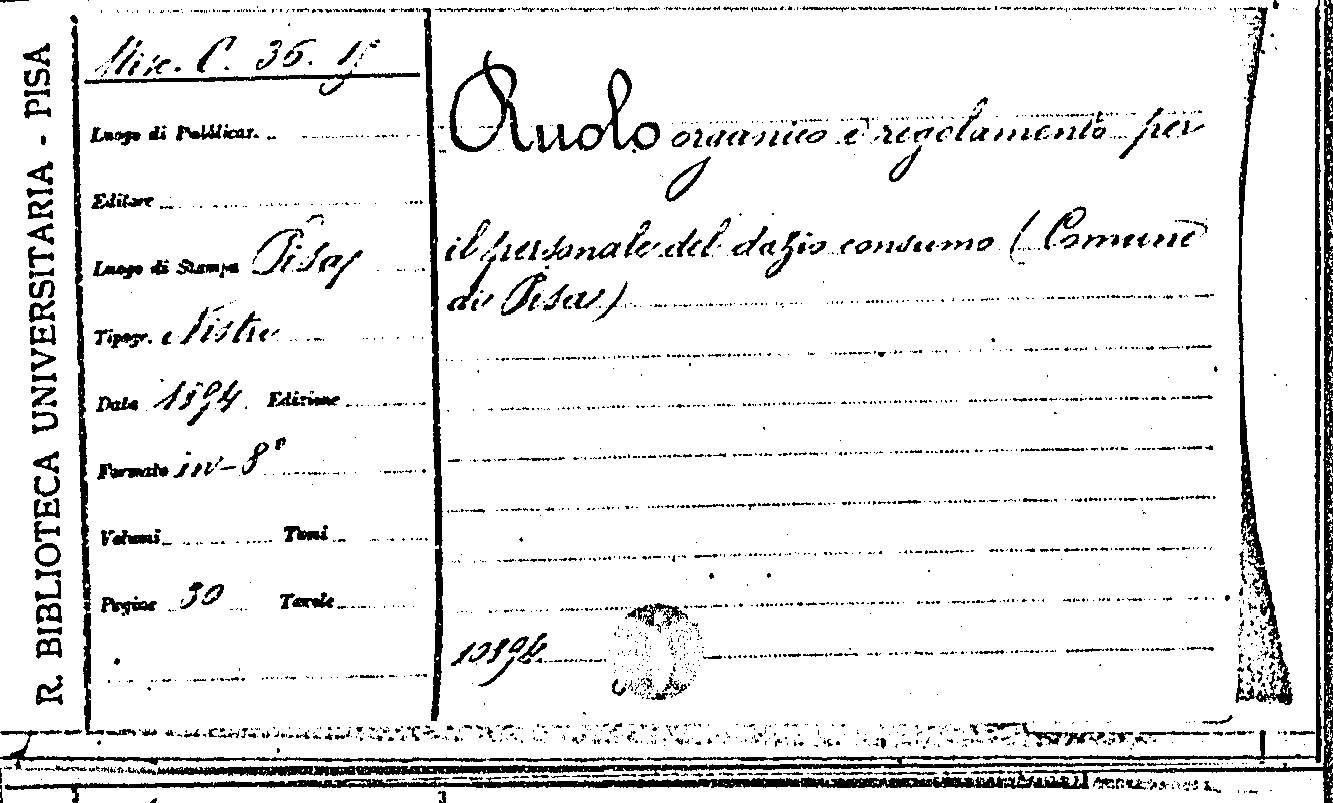 R. BIBLIOTECA UNIVERSITARIA - PISA
Misc. C. 36. 15
Luogo di Pubblicaz.
Editore
Luogo di Stampa Pisa,
Tipogr. Nistri
Data 1894 Edizione
Formato in-8°
Volumi Tomi
Pagine 30 Tavole
Ruolo organico e regolamento per
il personale del dazio consumo (Comune
di Pisa)
10894